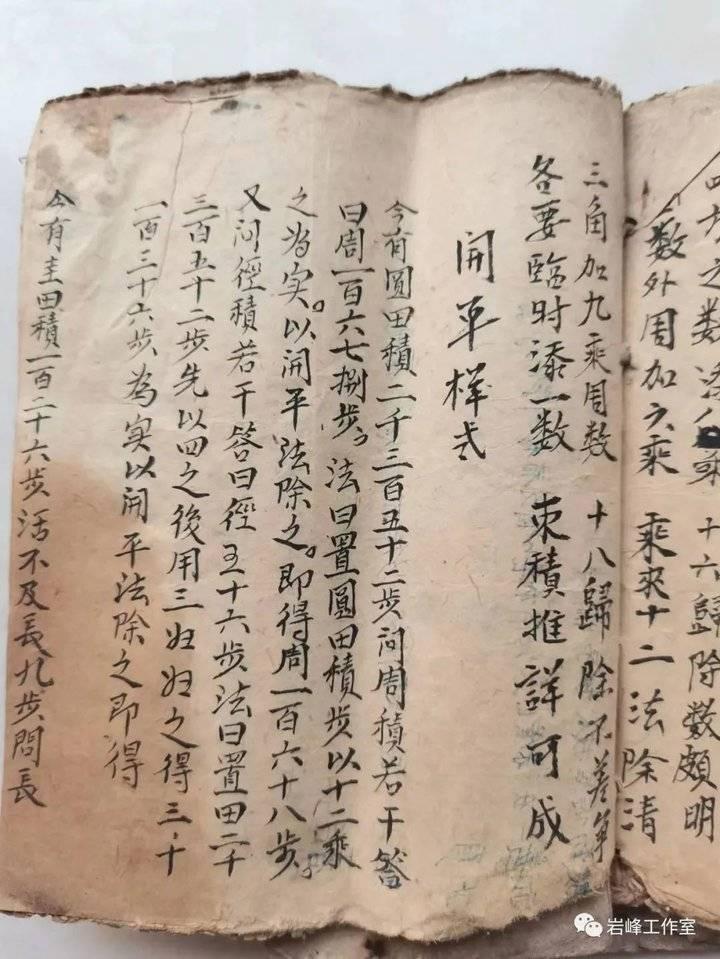 四方之数
十六歸除數頗明
數外周加六乘
乘來十二法除清
三角加九乘周数
十八歸除不差争
各要臨时添一数
束積推詳可成
開平様式
今有圓田積二千三百五十二步问周積若干答
曰周一百六七捌步法曰置圓田積步以十二乘
之為实以開平法除之即得周一百六十八步
又问徑積若干答曰徑五十六步法曰置田二千
三百五十二步先以四之後用三㱕㱕之得三千
一百三十六步為实以開平法除之即得
今有圭田積一百二十六步活不及長九步問長
岩峰工作室